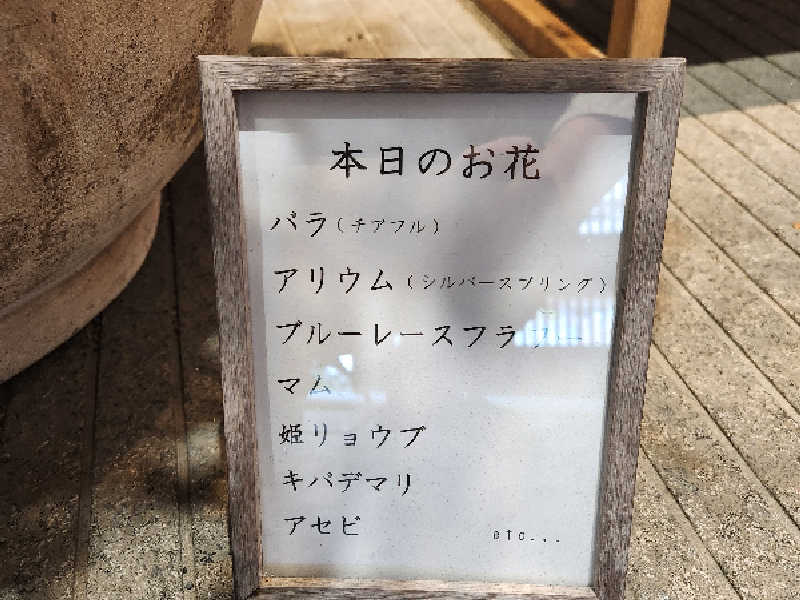 本日のお花
バラ(チアフル)
アリウム(シルバースプリング)
ブルーレースフラワー
マム
姫リョウブ
キバデマリ
アセビ
etc...